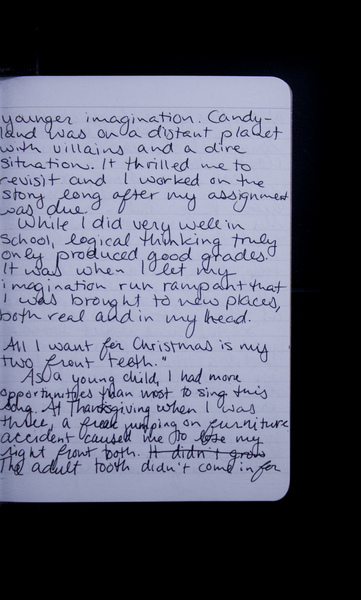 younger imagination. Candy-
land was on a distant planet
with villains and a dire
situation. It thrilled me to
revisit and I worked on the
story long after my assignment
was due.
While I did very well in
school, logical thinking truly
only produced good grades.
It was when I let my
imagination run rampant that
I was brought to new places,
both real and in my head.
All I want for Christmas is my
two front teeth."
As a young child, I had more
opportunities than most to sing this
song. At Thanksgiving when I was
three, a freak jumping on furniture
accident caused me to lose my
right front tooth. It didn't grow
The adult tooth didn't come in for